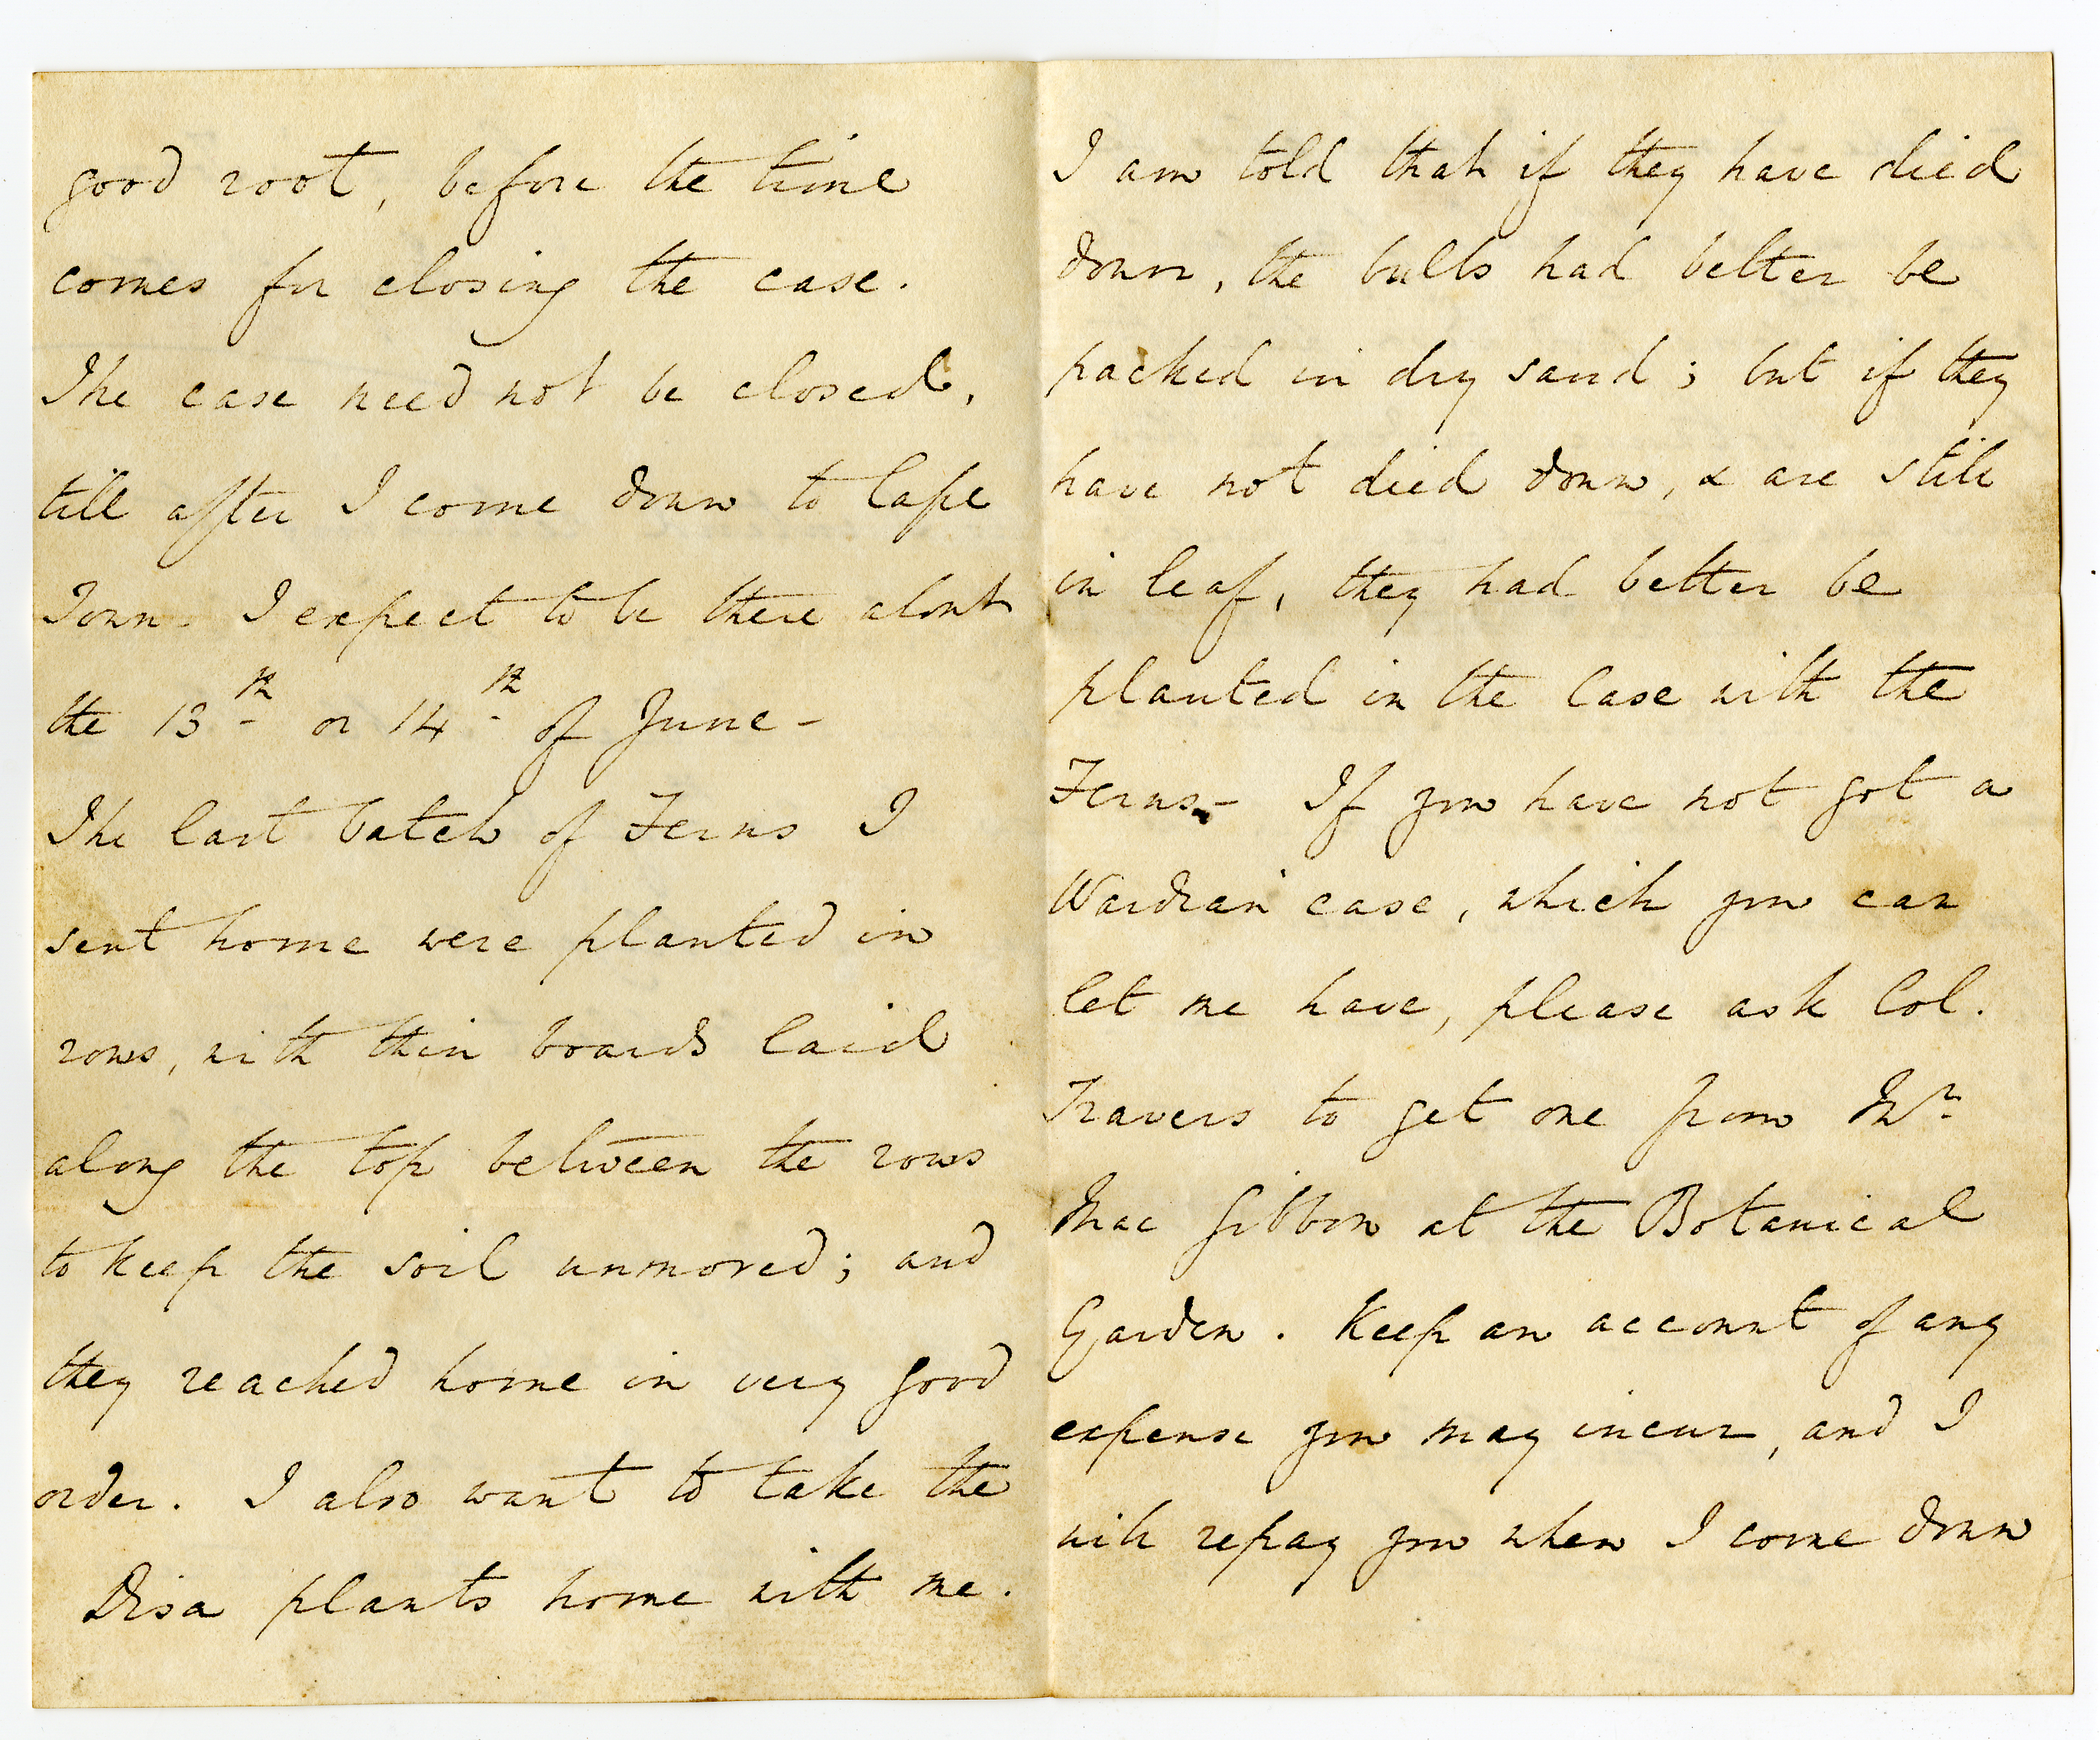 good root, before the time
comes for closing the case.
The case need not be closed,
till after I come down to Cape
Town. I expect to be there about
the 13th or 14th of June -
The last batch of Ferns I
sent home were planted in
rows, with thin boards laid
along the top between the rows
to keep the soil unmoved; and
they reached home in very good
order. I also want to take the
Disa plants home with me.
I am told that if they have died
down, the bulbs had better be
packed in dry sand; but if they
have not died down, & are still
in leaf, they had better be
planted in the Case with the
Ferns. - If you have not got a
Wardian case, which you can
let me have, please ask Col.
Travers to get one from Mr
Mac Gibbon at the Botanical
Garden. Keep an account of any
expense you may incur, and I
will repay you when I come down